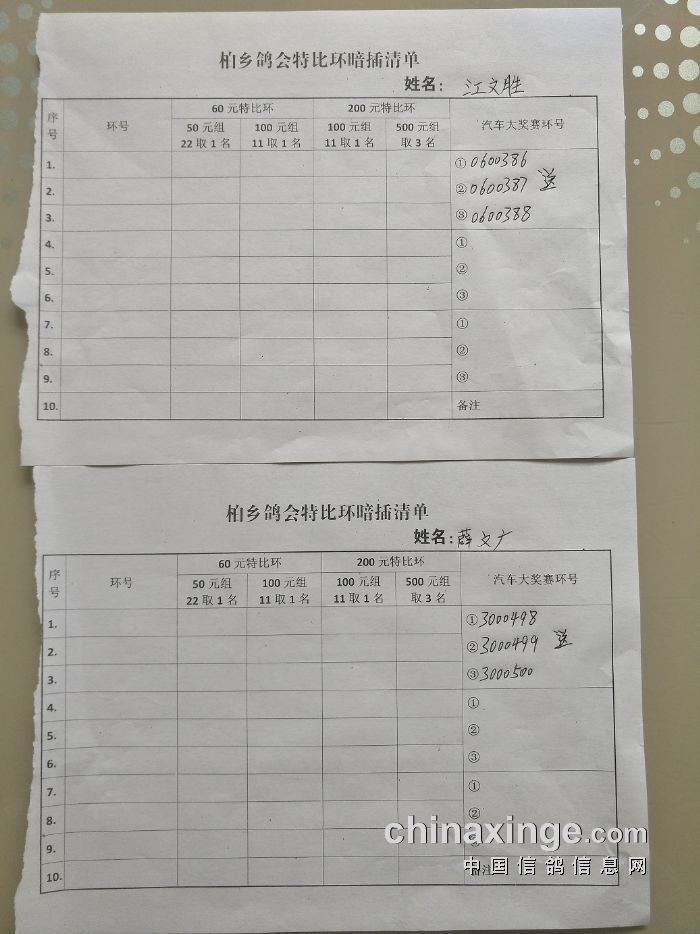 柏乡鸽会特比环暗插清单
姓名: 江文胜
序号 环号 60 元特比环 200 元特比环 汽车大奖赛环号
50 元组 22 取 1 名 100 元组 11 取 1 名 100 元组 11 取 1 名 500 元组 取 3 名
1. ①0600386
2. ②0600387 送
3. ③0600388
4. ①
5. ②
6. ③
7. ①
8. ②
9. ③
10. 备注
柏乡鸽会特比环暗插清单
姓名: 薛文广
序号 环号 60 元特比环 200 元特比环 汽车大奖赛环号
50 元组 22 取 1 名 100 元组 11 取 1 名 100 元组 11 取 1 名 500 元组 取 3 名
1. ①3000498
2. ②3000499 送
3. ③3000500
4. ①
5. ②
6. ③
7. ①
8. ②
9.
10. 备注
chinaxinge.com
中国信鸽信息网